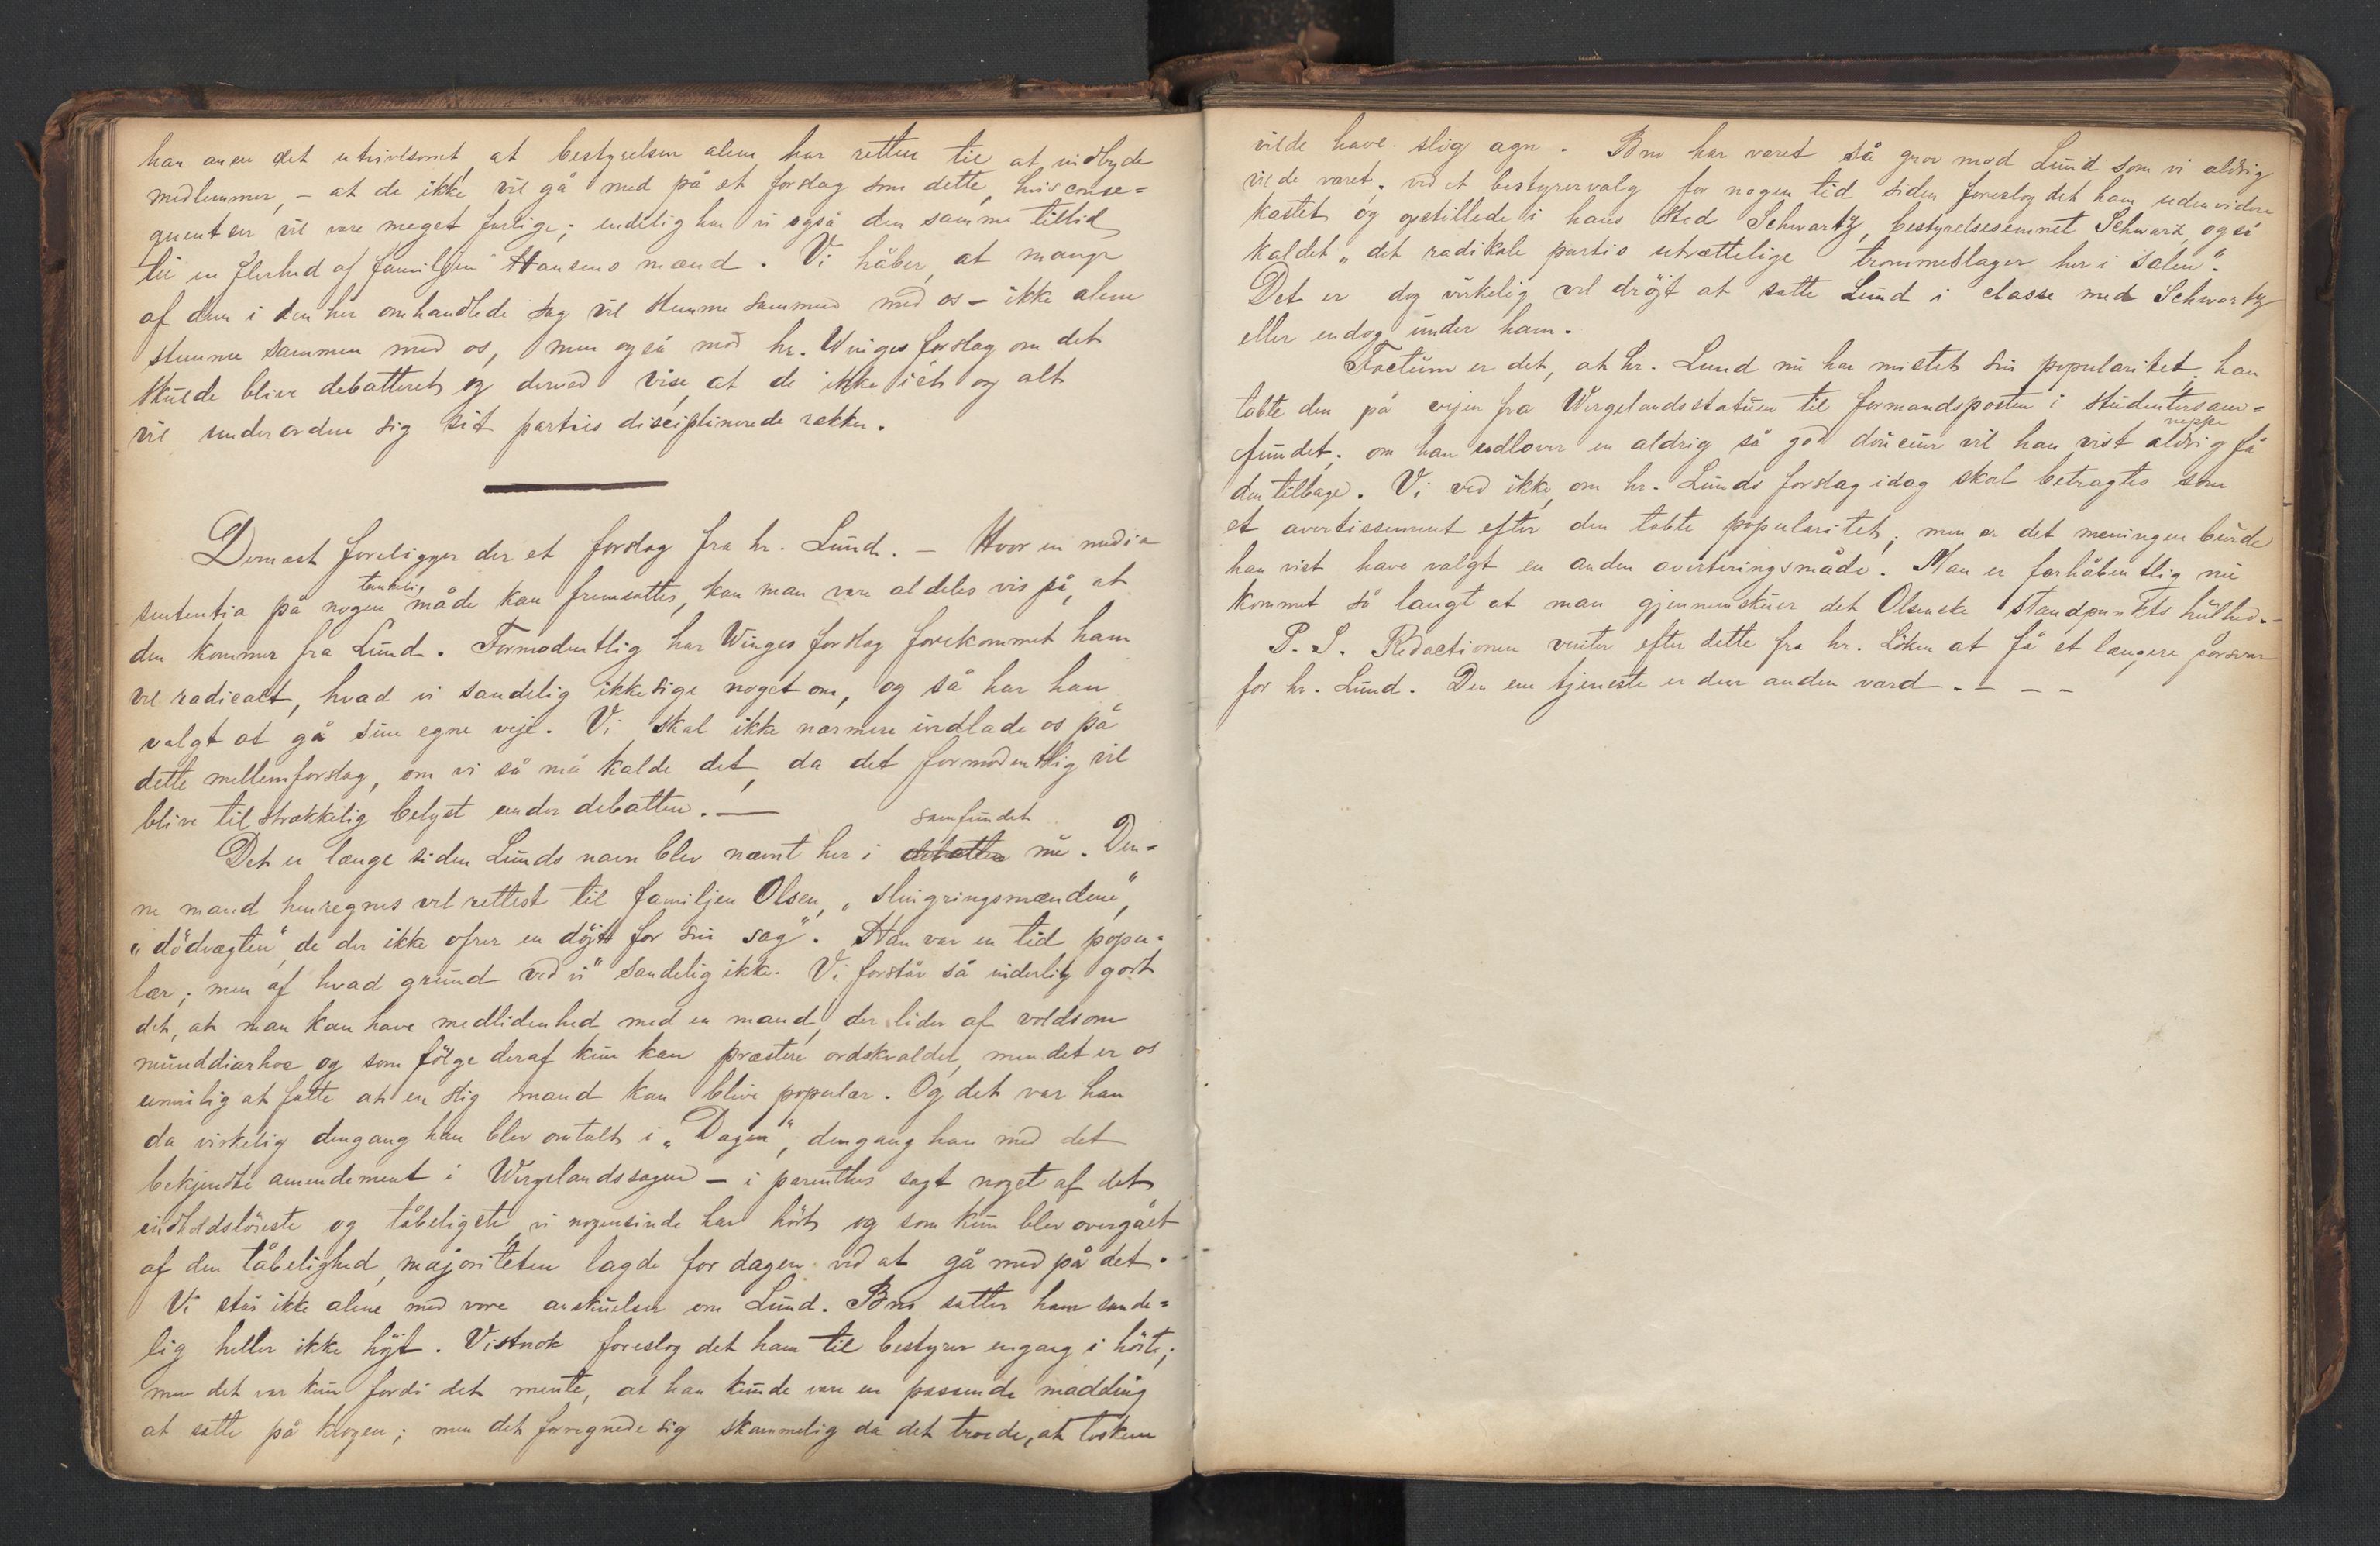 han anser det utvivlsomt, at bestyrelsen alene har retten til at indbyde
medlemmer, – at de ikke vil gå med på et forslag som dette, hvis conse-
quentser vil være meget farlige; endelig har vi også den samme tillid
til en flerhed af familjen Hansens mænd. Vi håber, at mange
af dem i den her omhandlede sag vil stemme sammen med os – ikke alene
stemme sammen med os, men også mod hr. Winges forslag om det
skulde blive debatteret og derved vise, at de ikke i ét og alt
vil underordne sig sit partis disciplinerede rækker.
Dernæst foreligger der et forslag fra hr. Lund. – Hvor en media
sententia på nogen tænkelig måde kan fremsættes, kan man være aldeles vis på, at
den kommer fra Lund. Formodentlig har Winges forslag forekommet ham
vel radicalt, hvad vi sandelig ikke sige noget om, og så har han
valgt at gå sine egne veje. Vi skal ikke nærmere indlade os på
dette mellemforslag, om vi så må kalde det, da det formodentlig vil
blive tilstrækkelig belyst under debatten. –
Det er længe siden Lunds navn blev nævnt her i debatten samfundet nu. Den-
ne mand henregnes vel rettest til familjen Olsen, „slingringsmændene",
„dödvægten", de der ikke ofrer en döjt for sin sag". Han var en tid popu-
lær; men af hvad grund ved vi sandelig ikke. Vi forstår så inderlig godt
det, at man kan have medlidenhed med en mand, der lider af voldsom
munddiarhoe og som fölge deraf kun kan præstere ordskvalder, men det er os
umulig at fatte at en slig mand kan blive populær. Og det var han
da virkelig dengang han blev omtalt i „Dagen", dengang han med det
bekjendte amendement i Wergelandssagen – i parenthes sagt noget af det
indholdslöseste og tåbeligste vi nogensinde har hört og som kun blev overgået
af den tåbelighed, majoriteten lagde for dagen ved at gå med på det.
Vi står ikke alene med vore anskuelser om Lund. Bno sætter ham sande-
lig heller ikke höjt. Vistnok foreslog det ham til bestyrer engang i höst;
men det var kun fordi det mente, at han kunde være en passende madding
at sætte på krogen; men det forregnede sig skammelig da det troede, at torsken
vilde have slig agn. Bno har været så grov mod Lund som vi aldrig
vilde været; ved et bestyrervalg for nogen tid siden foreslog det ham uden videre
kastet og opstillede i hans sted Schwartz, bestyrelsesemnet Schwartz, også
kaldet „det radikale partis utrættelige trommeslager her i salen".
Det er dog virkelig vel dröjt at sætte Lund i classe med Schwartz
eller endog under ham.
Factum er det, at hr. Lund nu har mistet sin popularitet, han
tabte den på vejen fra Wergelandsstatuen til formandsposten i studentersam-
fundet; om han udlover en aldrig så god douceur vil han vist aldrig neppe få
den tilbage. Vi ved ikke, om hr. Lunds forslag idag skal betragtes som
et avertissement efter den tabte popularitet; men er det meningen burde
han vist have valgt en anden averteringsmåde. Man er forhåbentlig nu
kommet så langt at man gjennemskuer det Olsenske standpunkts hulhed. –
P. S. Redactionen venter efter dette fra hr. Löken at få et længere forsvar
for hr. Lund. Den ene tjeneste er den anden værd. – – –